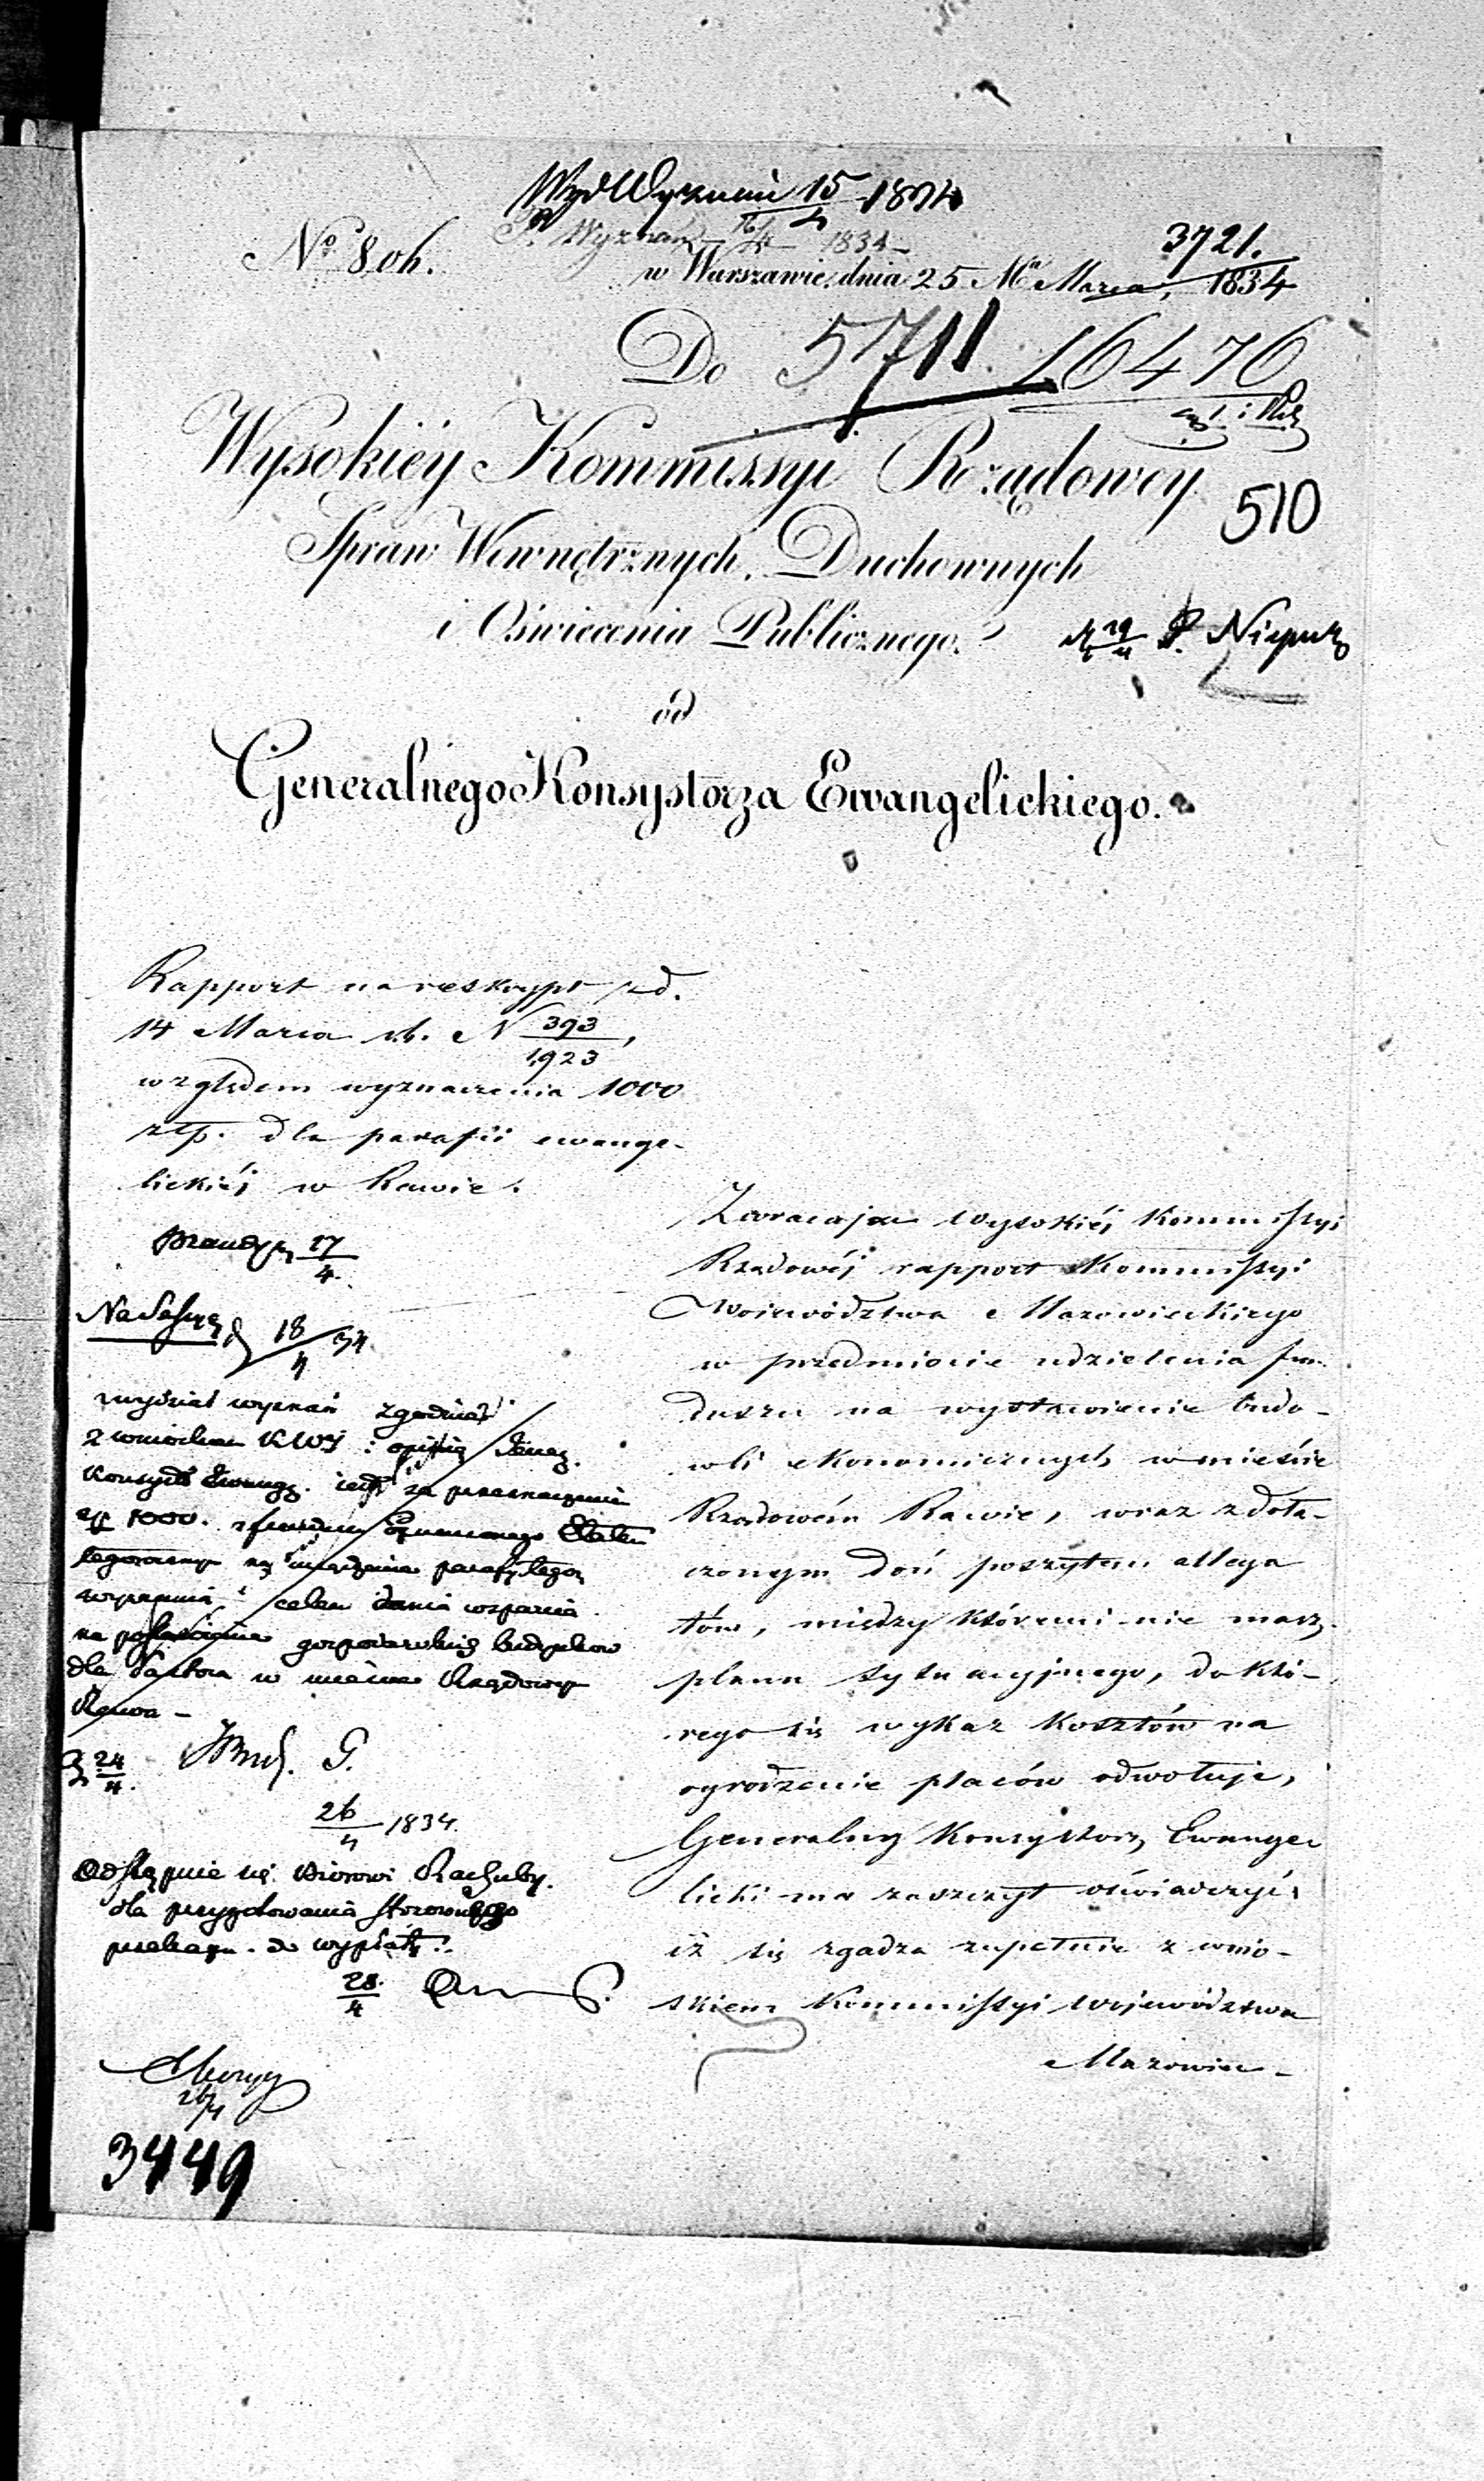 Wyd Wyznań 15/4 1834
P. Wyznań 16/4 1834
No 806.
3721.
w Warszawie, dnia 25 Ma Marca, 1834
Do
5711. 16476
Wysokiéy Kommissyi Rządowey
510
Spraw Wewnętrznych, Duchownych
i Oświecenia Publicznego.
19/4 P.
od
Generalnego Konsystorza Ewangelickiego.
Rapport na reskrypt zd.
14 Marca r.b. N 393/1923,
względem wyznaczenia 1000
złp. dla parafii ewange-
lickiéj w Rawie.
17/4.
18/4 34.
wydział wyznań zgodnie
z wnioskiem KWM i opinią Gener.
Konsyst Ewang. jest za przeznaczeniem
1000. z funduszu
na urządzenie parafij tego
wyznania, celem dania wsparcia
na postawienie gospodarskich budynków
dla Pastora w mieście Rządowym
Rawa –
24/4.
G.
26/4 1834.
Odstępuie się Biorowi Rachuby.
dla przygotowania stosownego
przekazu do wypłaty.
28./4
26/4
3449
Zwracając Wysokiéj Kommissyi
Rządowéj rapport Kommissyi
Województwa Mazowieckiego
w przedmiocie udzielenia fun
duszu na wystawienie budo-
wli ekonomicznych w mieście
Rządowém Rawie, wraz z dołą-
czonym doń poszytem allega
tów, między któremi nie masz
planu sytuacyjnego, do któ-
rego się wykaz kosztów na
ogrodzenie placów odwołuje,
Generalny Konsystorz Ewange
licki ma zaszczyt oświadczyć,
iż się zgadza zupełnie z wnio-
skiem Kommissyi Województwa
Mazowiec-